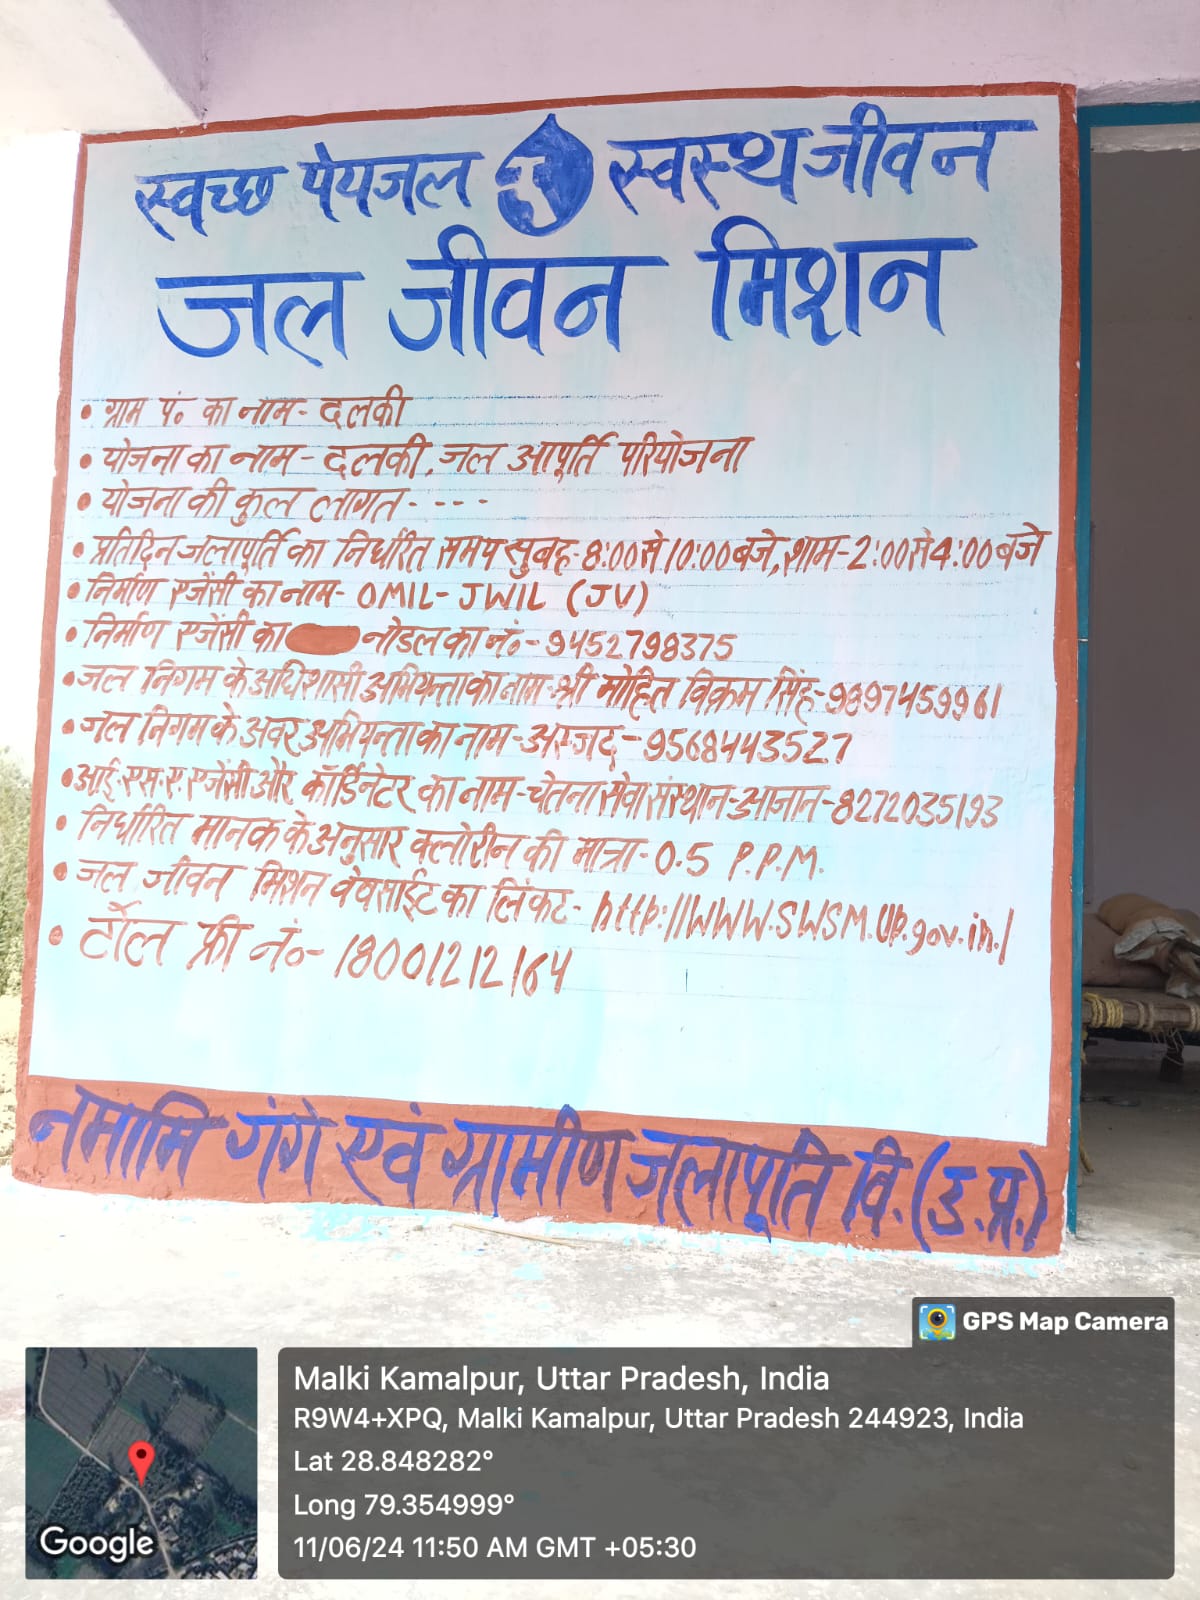 स्वच्छ पेयजल स्वस्थ जीवन
जल जीवन मिशन
• ग्राम पं० का नाम - दलकी
• योजना का नाम - दलकी, जल आपूर्ति परियोजना
• योजना की कुल लागत - - - -
• प्रतिदिन जलापूर्ति का निर्धारित समय सुबह - 8:00 से 10:00 बजे, शाम - 2:00 से 4:00 बजे
• निर्माण एजेंसी का नाम - OMIL - JWIL (JV)
• निर्माण एजेंसी का नोडल का नं० - 9452798375
• जल निगम के अधिशासी अभियन्ता का नाम - श्री मोहित विक्रम सिंह - 9897459961
• जल निगम के अवर अभियन्ता का नाम - अस्जद - 9568443527
• आई.एस.ए. एजेंसी और कॉर्डिनेटर का नाम - चेतना सेवा संस्थान - आजान - 8272035193
• निर्धारित मानक के अनुसार क्लोरीन की मात्रा - 0.5 P.P.M.
• जल जीवन मिशन वेषसाईट का लिंकट - http://WWW.SWSM.UP.gov.in./
• टॉल फ्री नं० - 18001212164
नमामि गंगे एवं ग्रामीण जलापूर्ति वि. (उ.प्र.)
GPS Map Camera
Malki Kamalpur, Uttar Pradesh, India
R9W4+XPQ, Malki Kamalpur, Uttar Pradesh 244923, India
Lat 28.848282°
Long 79.354999°
11/06/24 11:50 AM GMT +05:30
Google